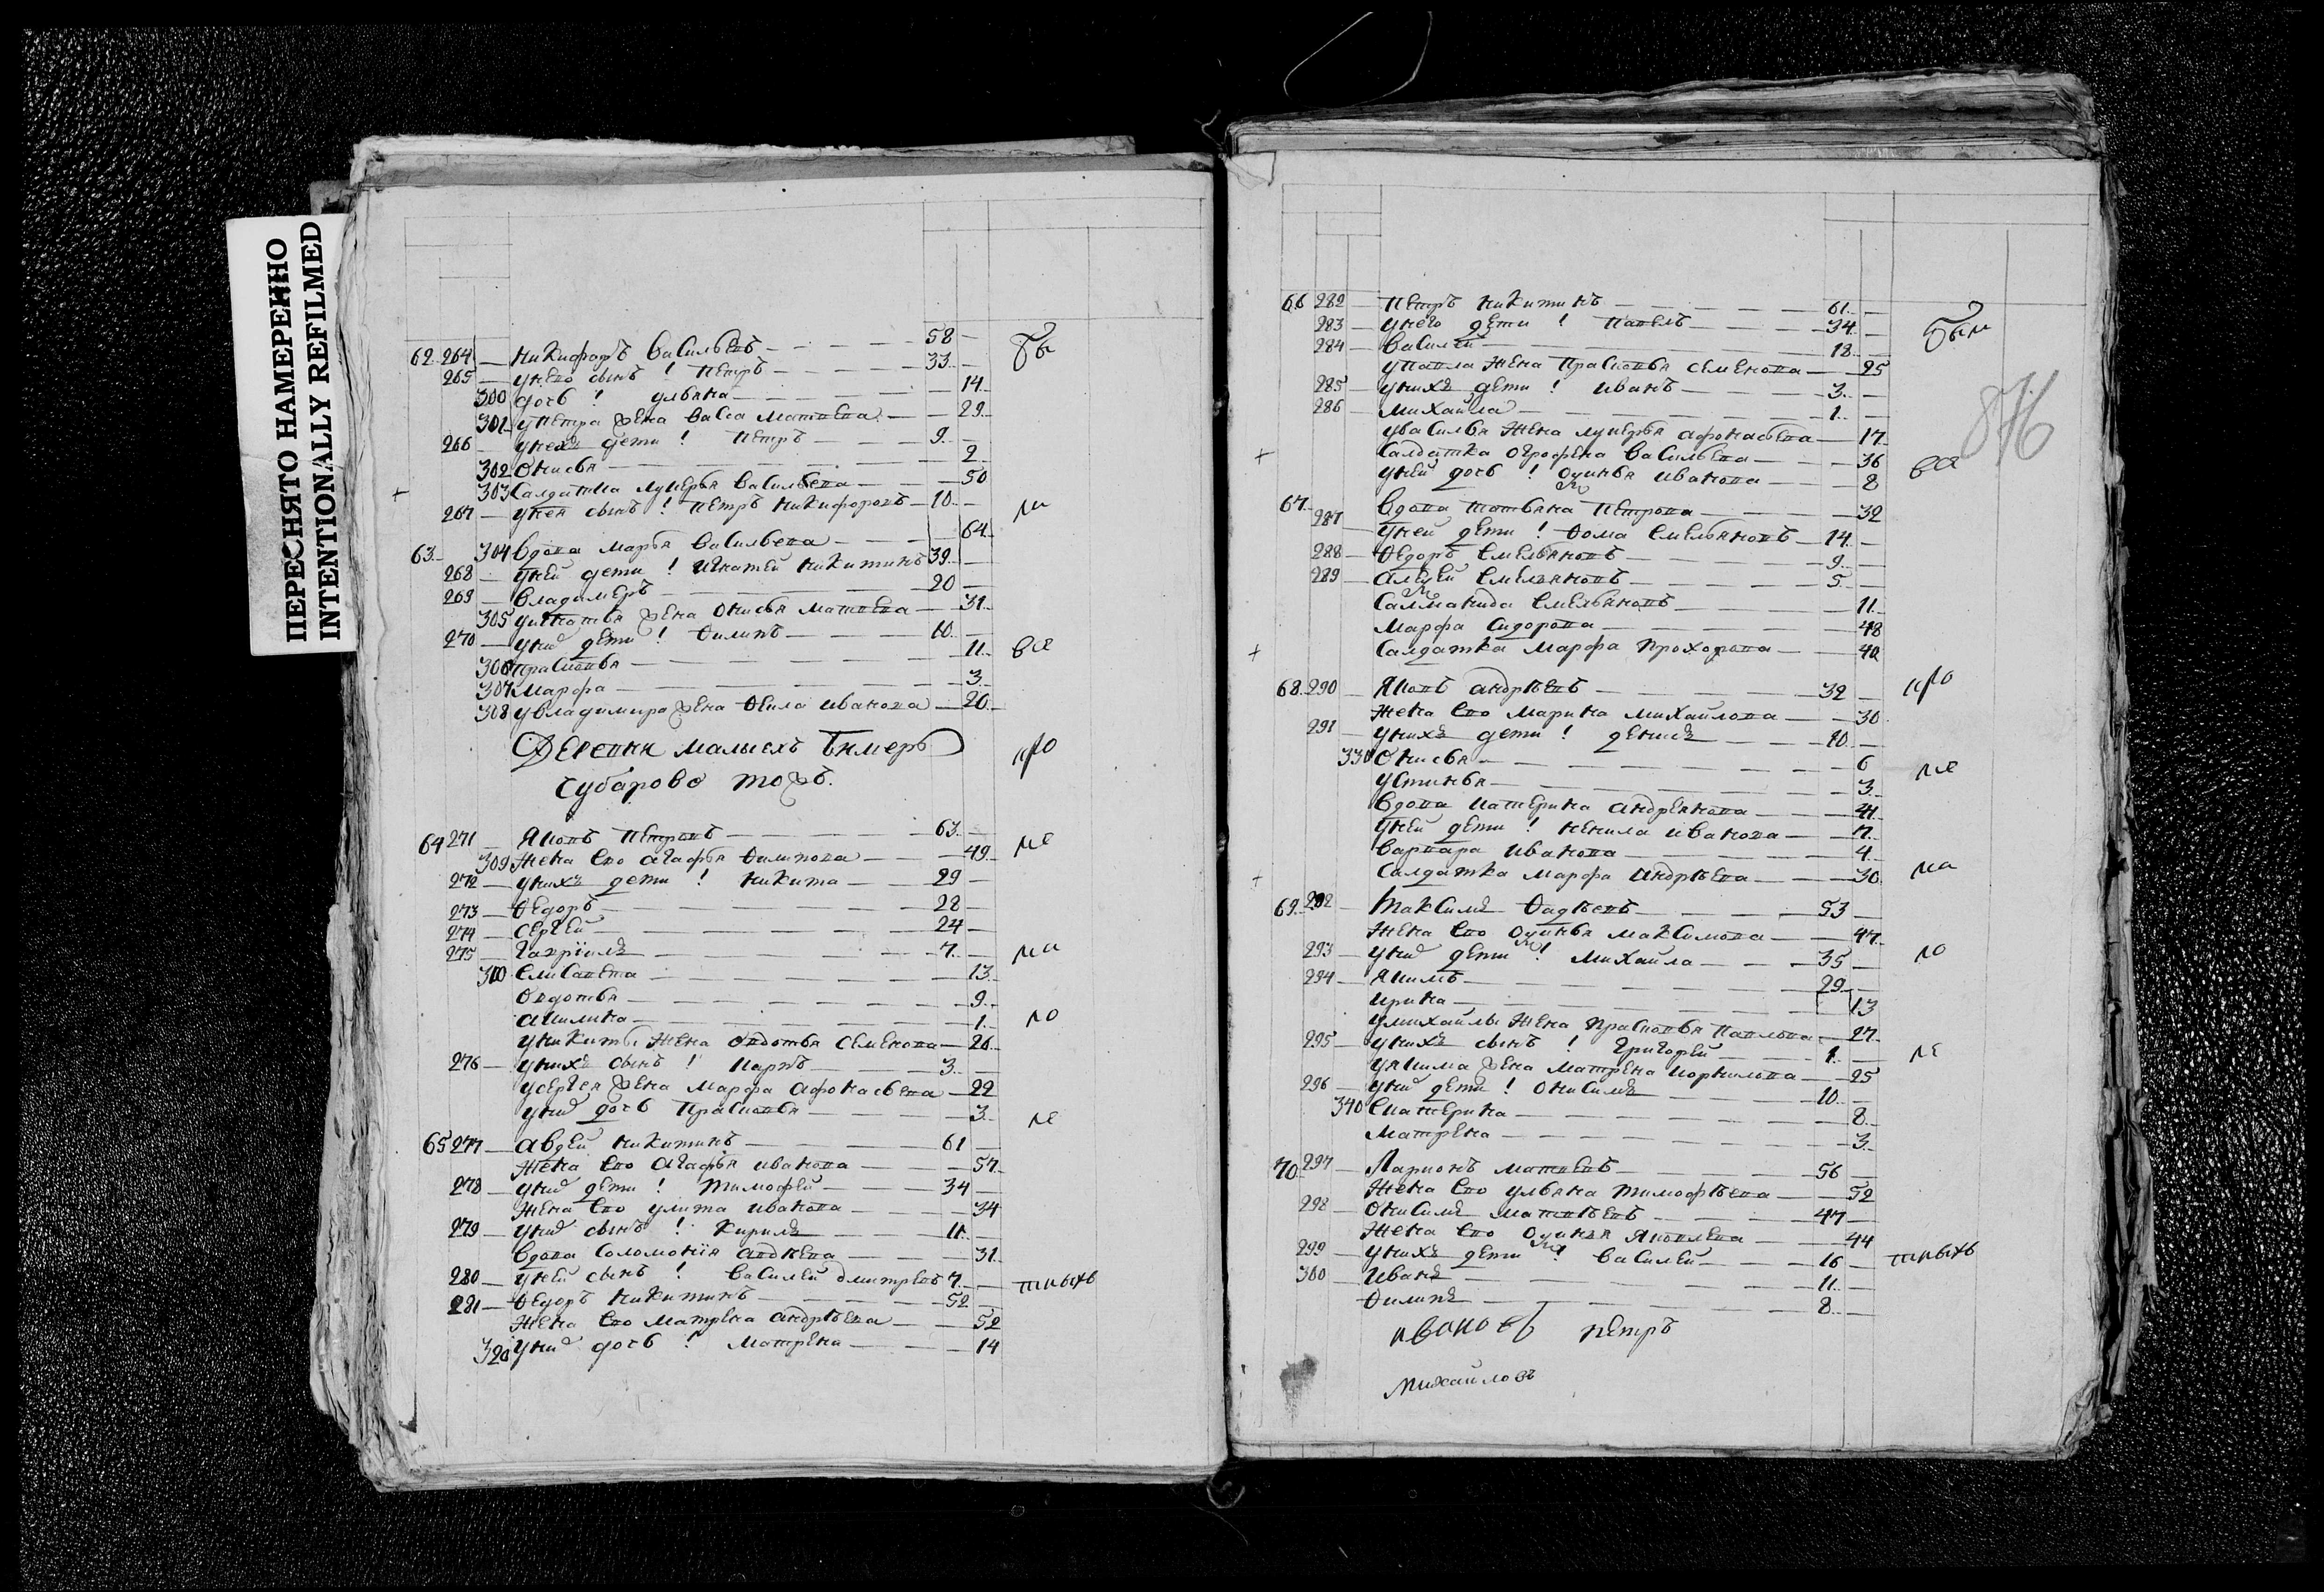 ПЕРЕСНЯТО НАМЕРЕННО
INTENTIONALLY REFILMED
62 264 Никифоръ Васильевъ 58
265 унево сынъ ! Петръ 33
300 дочь ! ульяна 14
301 уПетра жена Васса Матвева 29
266 унехъ дети ! Петръ 9
302 Онисья 2
303 Салдатка лукерья Васильева 50
267 унея сынъ ! Петръ Никифоровъ 10
63 304 Вдова Марья Васильева 64
268 уней дети ! Игнатей Никитинъ 39
269 Владимеръ 20
305 уигнатья жена Онисья Матвева 31
270 уних дети ! Филипъ 10
306 Прасковья 11
307 Марфа 3
308 уВладимира жена Фекла иванова 20
Деревни малыехъ Бимерь
Субарово тожъ.
64 271 Яковъ Петровъ 63
309 Жена ево агафья Филипова 49
272 унихъ дети ! Никита 29
273 Федоръ 28
274 Сергей 24
275 Гаврiилъ 7
310 Елисавета 13
Овдотья 9
акилина 1
уникиты жена овдотья Семенова 26
276 унихъ сынъ ! Карпъ 3
усергея жена Марфа афонасьева 22
уних дочь Прасковья 3
65 277 авдей Никитинъ 61
Жена ево агафья иванова 57
278 уних дети ! Тимофей 34
Жена ево улита иванова 34
279 уних сынъ ! Кирилъ 11
Вдова Соломонiя авдеева 31
280 уней сынъ ! Василей Дмитревъ 7
281 Федоръ Никитинъ 52
Жена ево Матрена андреева 52
320 уних дочь ! Матрена 14
бы
ли
все
про
ме
ма
ло
ле
тныхъ
66 282 Петръ Никитинъ 61
283 унего дети ! Павелъ 34
284 Василей 18
упавла жена Прасковья Семенова 25
285 унихъ дети ! иванъ 3
286 Михайла 1
уВасилья жена лукерья афонасьева 17
Салдатка огрофена Васильева 36
уней дочь ! иванова 8
67 Вдова татьяна Петрова 32
287 уней дети ! Фома Емельяновъ 14
288 Федоръ Емельяновъ 9
289 Алексей Емельяновъ 5
Салманида Емельяновъ 11
Марфа Сидорова 48
Салдатка Марфа Прохорова 40
68 290 Яковъ андреевъ 32
Жена ево Марина Михайлова 30
291 унихъ дети ! денисъ 10
330 Онисья 6
устинья 3
Вдова катерина андреянова 41
уней дети ! Ненила иванова 7
Варвара иванова 4
Салдатка Марфа андреева 30
69 292 Максимъ Фадеевъ 53
Жена ево Максимова 47
293 уних дети ! Михайла 35
294 Якимъ 29
ирина 13
умихайлы жена Прасковья Павлова 27
295 унихъ сынъ ! Григорей 1
уякима жена Матрена корнилова 25
296 уних дети ! Онисимъ 10
340 Екатерина 8
Матрена 3
70 297 Ларионъ Матвевъ 56
Жена ево ульяна Тимофеева 52
298 Онисимъ Матвеевъ 47
Жена ево Яковлева 44
299 унихъ дети ! Василей 16
300 иванъ 11
Филипъ 8
ивановъ Петръ
Михайловъ
876